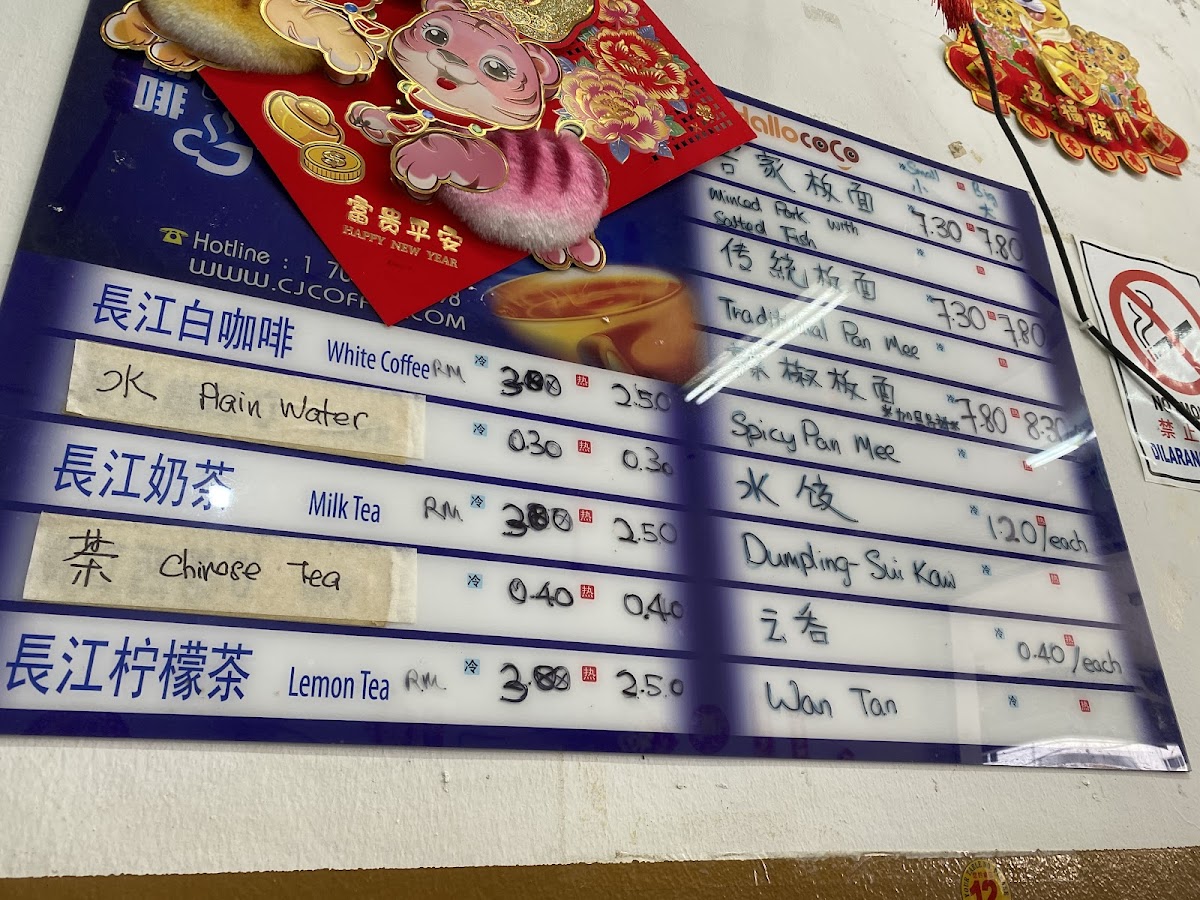 啡
富贵平安
HAPPY NEW YEAR
五福臨門
Hotline : 1 70
WWW.CJCOFF .COM
長江白咖啡 White Coffee RM 冷 3.00 热 2.50
水 Plain Water 冷 0.30 热 0.30
長江奶茶 Milk Tea RM 冷 3.00 热 2.50
茶 Chinese Tea 冷 0.40 热 0.40
長江柠檬茶 Lemon Tea RM 冷 3.00 热 2.50
Hallo coco
Small Big
小 大
家板面 7.30 7.80
Minced Pork with
Salted Fish
传統板面 7.30 7.80
Traditional Pan Mee
辣椒板面 7.80 8.30
Spicy Pan Mee
水饺 1.20/each
Dumpling-Sui Kaw
云吞 0.40/each
Wan Tan
禁止
DILARANG
12